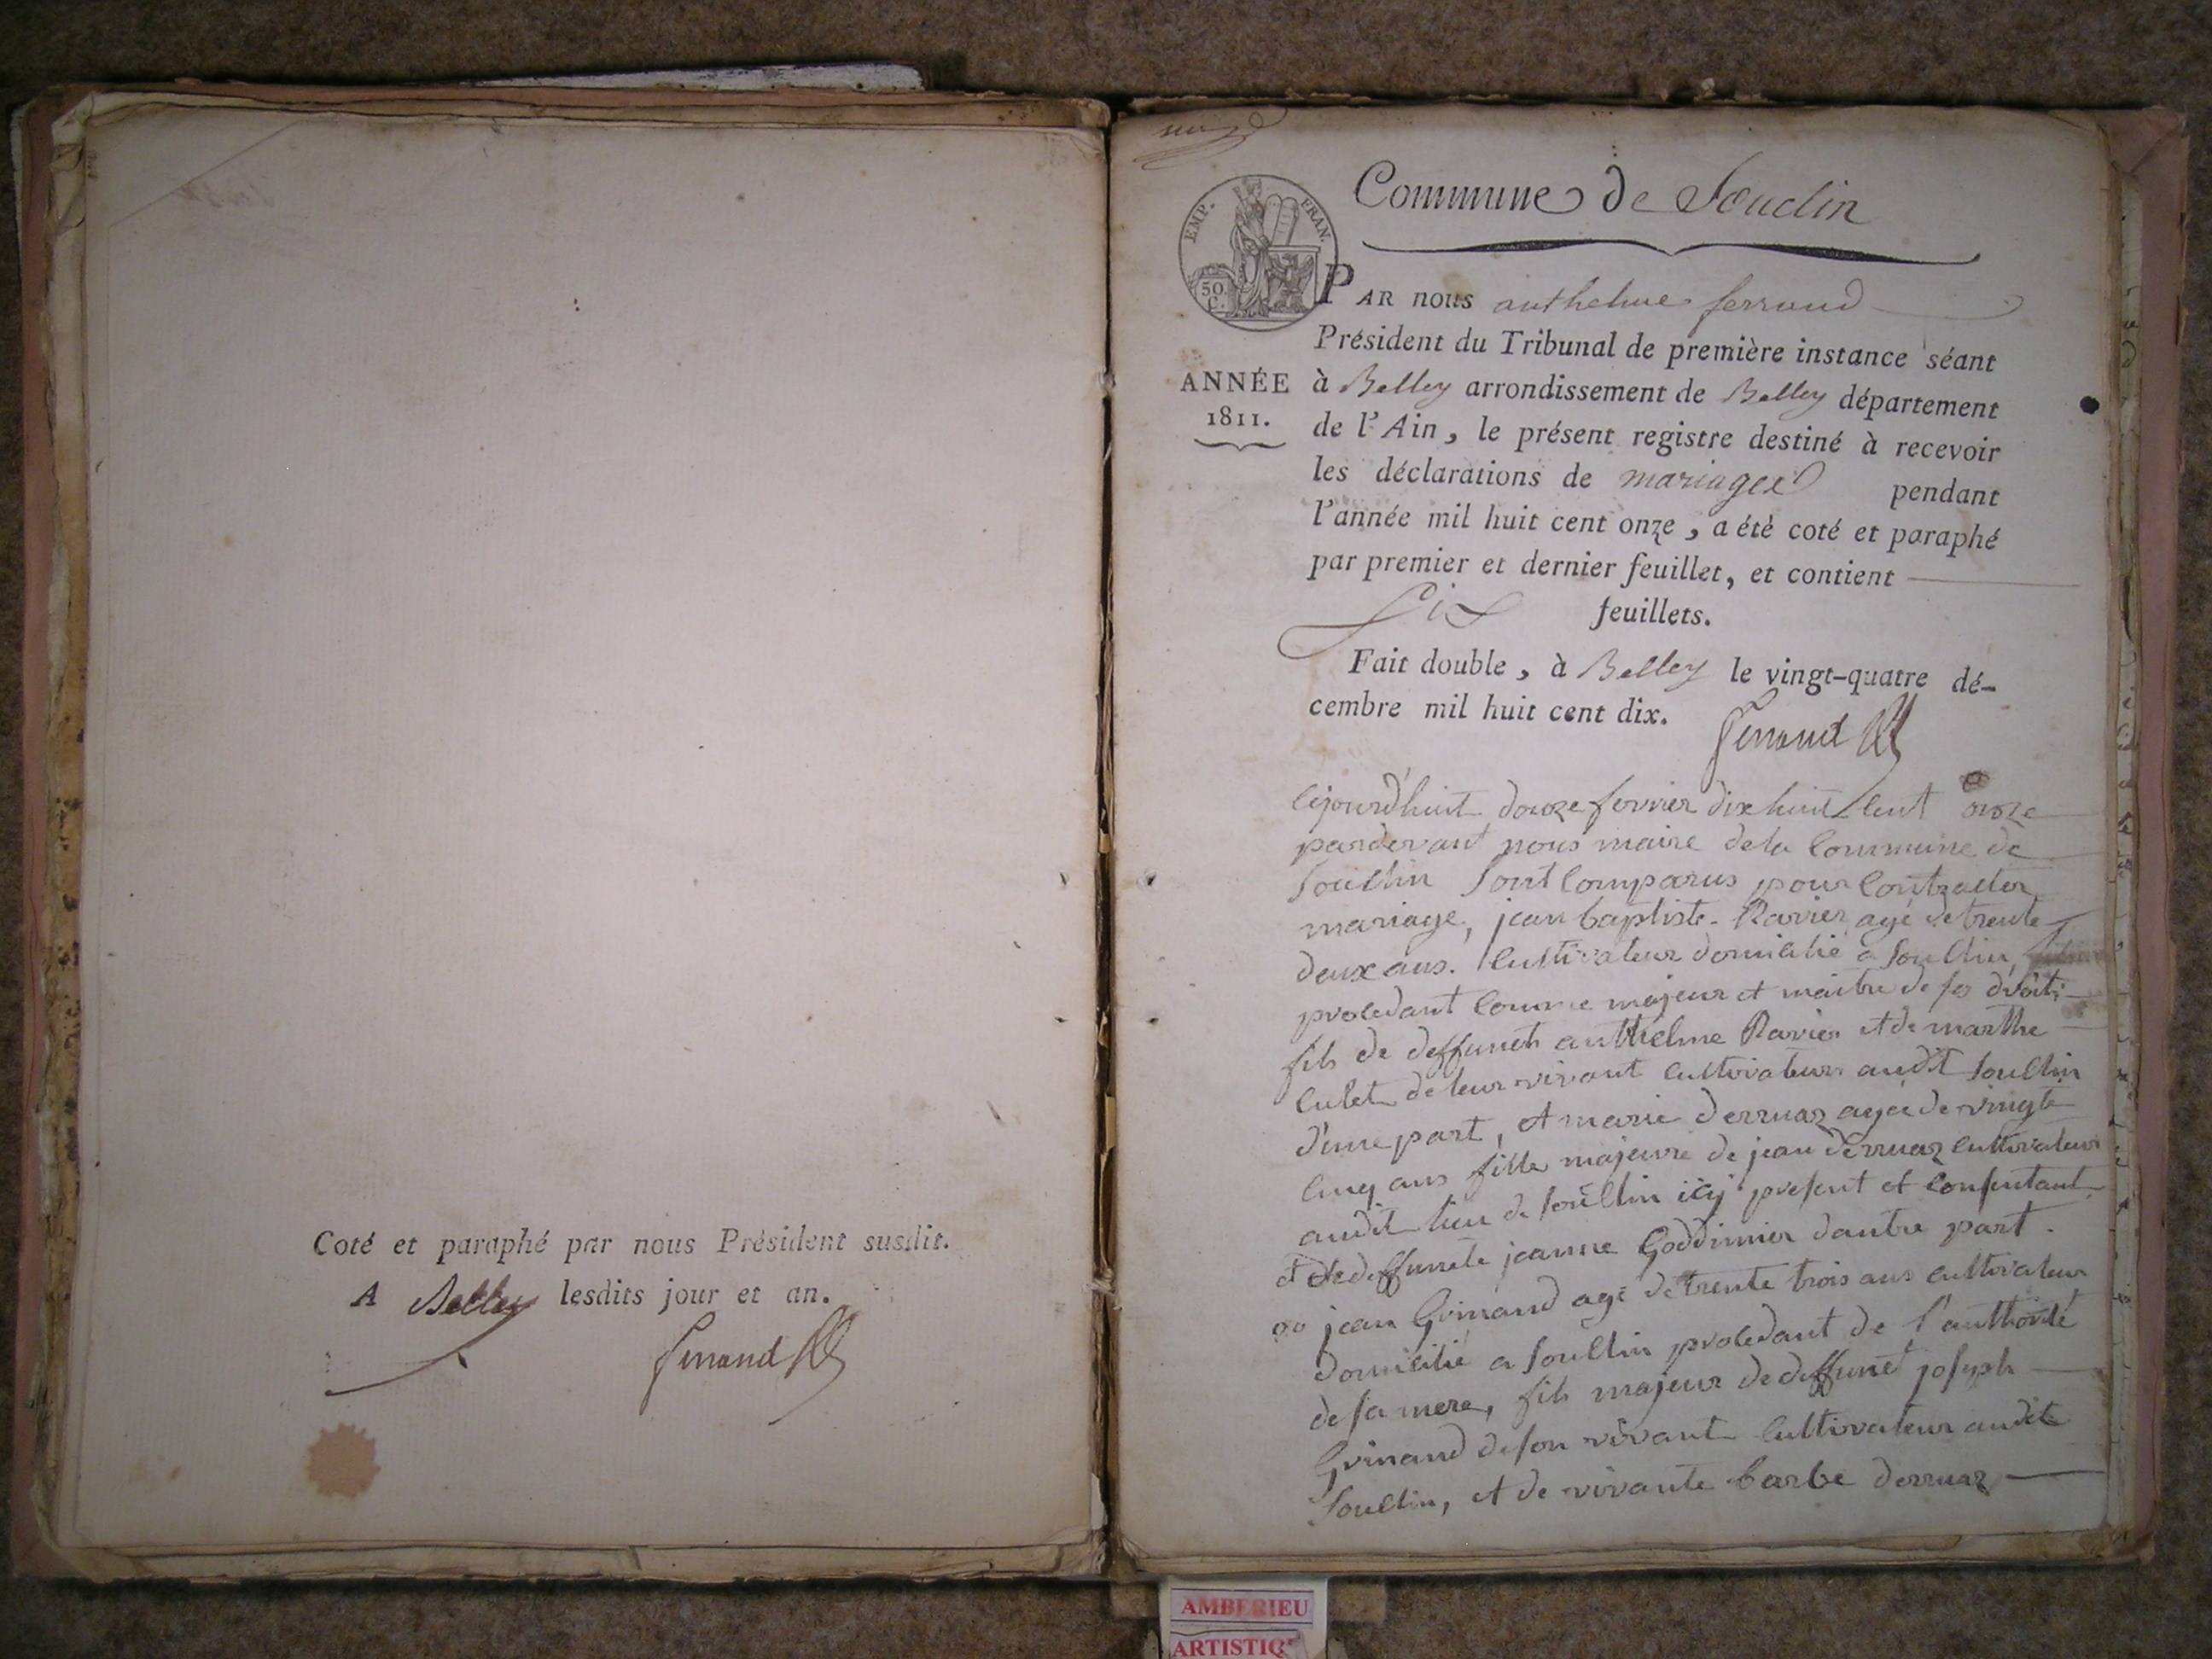 Coté et paraphé par nous Président susdit.
A Belley lesdits jour et an.
ferrand
Commune de Souclin
EMP. FRAN.
50 C.
PAR nous anthelme ferrand
Président du Tribunal de première instance séant
ANNÉE 1811.
à Belley arrondissement de Belley département
de l'Ain, le présent registre destiné à recevoir
les déclarations de mariages pendant
l'année mil huit cent onze, a été coté et paraphé
par premier et dernier feuillet, et contient
six feuillets.
Fait double, à Belley le vingt-quatre dé-
cembre mil huit cent dix.
ferrand
cejourd'huit douze fevrier dix huit cent onze
pardevant nous maire de la commune de
Souclin sont comparus pour contracter
mariage, jean baptiste Ravier agé de trente
deux ans. cultivateur domicilié a Souclin,
procedant comme majeur et maitre de ses droits
fils de deffunts anthelme Ravier et de marthe
culet de leur vivant cultivateurs audit Souclin
d'une part, et marie derruaz agée de vingt
cinq ans fille majeure de jean derruaz cultivateur
audit lieu de souclin icy present et consentant
et de deffunte jeanne Goddinnier dautre part.
jean Grinand agé de trente trois ans cultivateur
domicilié a Souclin procedant de l'authorité
de sa mere, fils majeur de deffunt joseph
Grinand de son vivant cultivateur audit
Souclin, et de vivante barbe derruaz
AMBERIEU
ARTISTIQ